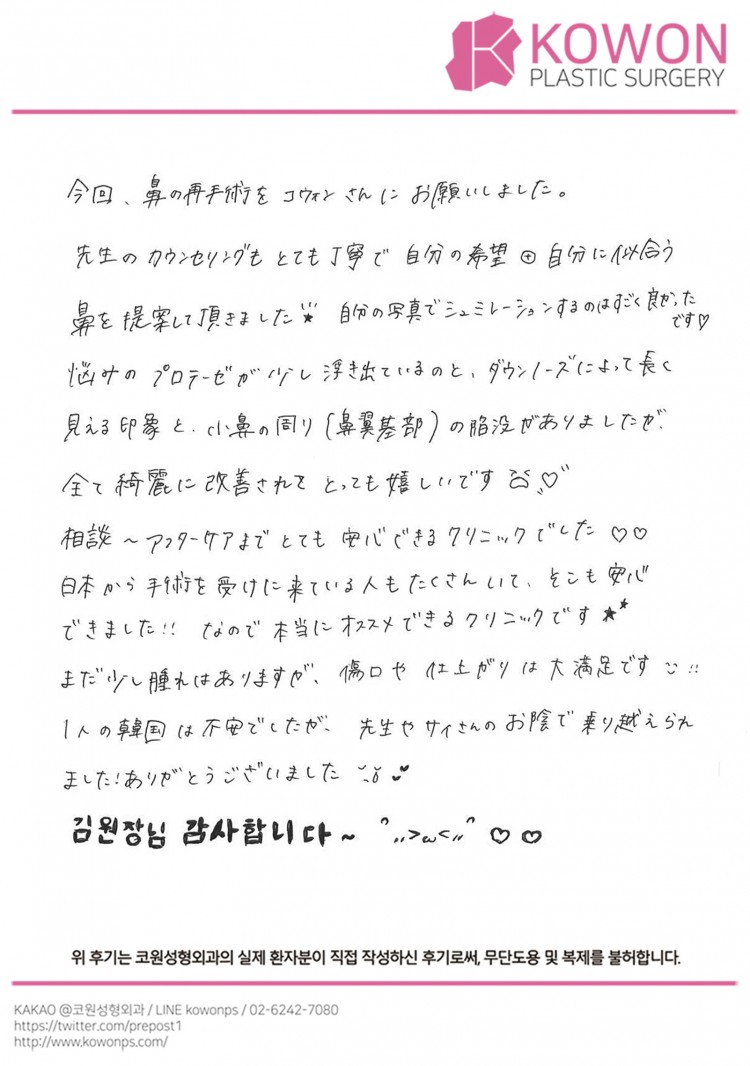 KOWON
PLASTIC SURGERY
今回、鼻の再手術を コウォン さんに お願いしました。
先生の カウンセリングも とても 丁寧で 自分の希望 ⊕ 自分に似合う
鼻を 提案して 頂きました 自分の写真で シュミレーションするのはすごく 良かった
です♡
悩みの プロテーゼが 少し 浮き出ているのと、ダウンノーズによって 長く
見える 印象 と、小鼻の周り (鼻翼基部) の 陥没がありましたが、
全て 綺麗に 改善されて とっても 嬉しいです ♡
相談 〜 アフターケアまで とても 安心できる クリニックでした ♡♡
日本から 手術を 受けに 来ている 人も たくさん いて、そこも 安心
できました!! なので 本当に オススメ できる クリニックです ★★
まだ 少し 腫れはありますが、傷口や 仕上がり は 大満足です !!
1人の 韓国 は 不安でしたが、先生や サイさんの お陰で 乗り越えられ
ました! ありがとうございました
김원장님 감사합니다~ ^,,>ω<,,^ ♡♡
위 후기는 코원성형외과의 실제 환자분이 직접 작성하신 후기로써, 무단도용 및 복제를 불허합니다.
KAKAO @코원성형외과 / LINE kowonps / 02-6242-7080
https://twitter.com/prepost1
http://www.kowonps.com/